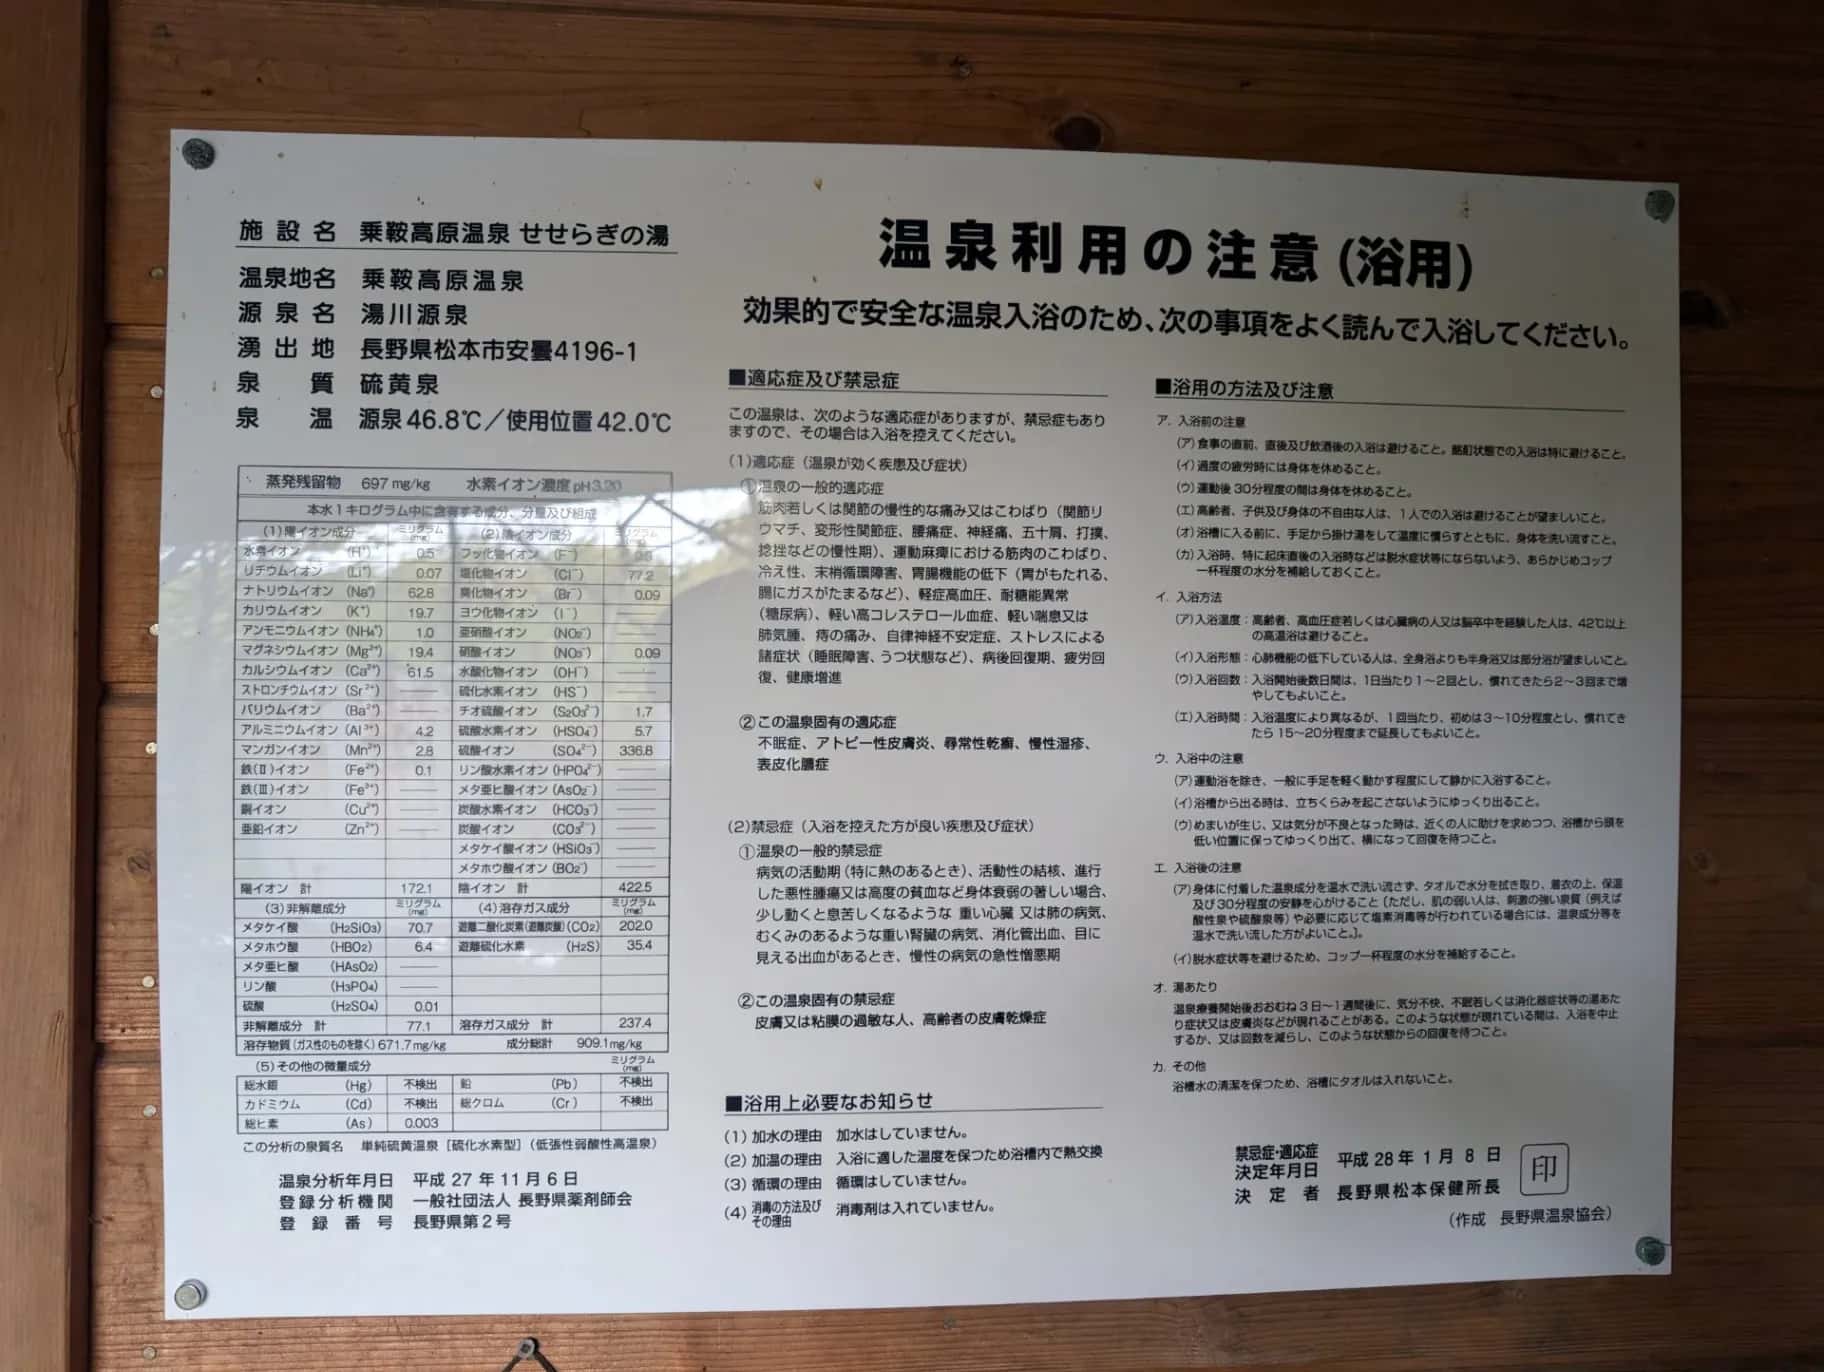 施設名 乗鞍高原温泉 せせらぎの湯
温泉地名 乗鞍高原温泉
源泉名 湯川源泉
湧出地 長野県松本市安曇4196-1
泉質 硫黄泉
泉温 源泉46.8℃/使用位置42.0℃
蒸発残留物 697 mg/kg 水素イオン濃度pH3.20
本水1キログラム中に含有する成分、分量及び組成
(1)陽イオン成分 ミリグラム(mg) (2)陰イオン成分 ミリグラム
水素イオン (H⁺) 0.5 フッ化物イオン (F⁻)
リチウムイオン (Li⁺) 0.07 塩化物イオン (Cl⁻) 77.2
ナトリウムイオン (Na⁺) 62.8 臭化物イオン (Br⁻) 0.09
カリウムイオン (K⁺) 19.7 ヨウ化物イオン (I⁻) ——
アンモニウムイオン (NH₄⁺) 1.0 亜硝酸イオン (NO₂⁻) ——
マグネシウムイオン (Mg²⁺) 19.4 硝酸イオン (NO₃⁻) 0.09
カルシウムイオン (Ca²⁺) 61.5 水酸化物イオン (OH⁻) ——
ストロンチウムイオン (Sr²⁺) —— 硫化水素イオン (HS⁻) ——
バリウムイオン (Ba²⁺) —— チオ硫酸イオン (S₂O₃²⁻) 1.7
アルミニウムイオン (Al³⁺) 4.2 硫酸水素イオン (HSO₄⁻) 5.7
マンガンイオン (Mn²⁺) 2.8 硫酸イオン (SO₄²⁻) 336.8
鉄(Ⅱ)イオン (Fe²⁺) 0.1 リン酸水素イオン (HPO₄²⁻) ——
鉄(Ⅲ)イオン (Fe³⁺) —— メタ亜ヒ酸イオン (AsO₂⁻) ——
銅イオン (Cu²⁺) —— 炭酸水素イオン (HCO₃⁻) ——
亜鉛イオン (Zn²⁺) —— 炭酸イオン (CO₃²⁻) ——
メタケイ酸イオン (HSiO₃⁻) ——
メタホウ酸イオン (BO₂⁻) ——
陽イオン 計 172.1 陰イオン 計 422.5
(3)非解離成分 ミリグラム(mg) (4)溶存ガス成分 ミリグラム(mg)
メタケイ酸 (H₂SiO₃) 70.7 遊離二酸化炭素(遊離炭酸)(CO₂) 202.0
メタホウ酸 (HBO₂) 6.4 遊離硫化水素 (H₂S) 35.4
メタ亜ヒ酸 (HAsO₂) ——
リン酸 (H₃PO₄) ——
硫酸 (H₂SO₄) 0.01
非解離成分 計 77.1 溶存ガス成分 計 237.4
溶存物質(ガス性のものを除く) 671.7mg/kg 成分総計 909.1mg/kg
(5)その他の微量成分 ミリグラム(mg)
総水銀 (Hg) 不検出 鉛 (Pb) 不検出
カドミウム (Cd) 不検出 総クロム (Cr) 不検出
総ヒ素 (As) 0.003
この分析の泉質名 単純硫黄温泉［硫化水素型］(低張性弱酸性高温泉)
温泉分析年月日 平成27年11月6日
登録分析機関 一般社団法人 長野県薬剤師会
登録番号 長野県第2号
温泉利用の注意(浴用)
効果的で安全な温泉入浴のため、次の事項をよく読んで入浴してください。
■適応症及び禁忌症
この温泉は、次のような適応症がありますが、禁忌症もあり
ますので、その場合は入浴を控えてください。
(1)適応症(温泉が効く疾患及び症状)
①温泉の一般的適応症
筋肉若しくは関節の慢性的な痛み又はこわばり(関節リ
ウマチ、変形性関節症、腰痛症、神経痛、五十肩、打撲、
捻挫などの慢性期)、運動麻痺における筋肉のこわばり、
冷え性、末梢循環障害、胃腸機能の低下(胃がもたれる、
腸にガスがたまるなど)、軽症高血圧、耐糖能異常
(糖尿病)、軽い高コレステロール血症、軽い喘息又は
肺気腫、痔の痛み、自律神経不安定症、ストレスによる
諸症状(睡眠障害、うつ状態など)、病後回復期、疲労回
復、健康増進
②この温泉固有の適応症
不眠症、アトピー性皮膚炎、尋常性乾癬、慢性湿疹、
表皮化膿症
(2)禁忌症(入浴を控えた方が良い疾患及び症状)
①温泉の一般的禁忌症
病気の活動期(特に熱のあるとき)、活動性の結核、進行
した悪性腫瘍又は高度の貧血など身体衰弱の著しい場合、
少し動くと息苦しくなるような 重い心臓 又は肺の病気、
むくみのあるような重い腎臓の病気、消化管出血、目に
見える出血があるとき、慢性の病気の急性憎悪期
②この温泉固有の禁忌症
皮膚又は粘膜の過敏な人、高齢者の皮膚乾燥症
■浴用上必要なお知らせ
(1)加水の理由 加水はしていません。
(2)加温の理由 入浴に適した温度を保つため浴槽内で熱交換
(3)循環の理由 循環はしていません。
(4)消毒の方法及びその理由 消毒剤は入れていません。
■浴用の方法及び注意
ア. 入浴前の注意
(ア)食事の直前、直後及び飲酒後の入浴は避けること。酩酊状態での入浴は特に避けること。
(イ)過度の疲労時には身体を休めること。
(ウ)運動後30分程度の間は身体を休めること。
(エ)高齢者、子供及び身体の不自由な人は、1人での入浴は避けることが望ましいこと。
(オ)浴槽に入る前に、手足から掛け湯をして温度に慣らすとともに、身体を洗い流すこと。
(カ)入浴時、特に起床直後の入浴時などは脱水症状等にならないよう、あらかじめコップ
一杯程度の水分を補給しておくこと。
イ. 入浴方法
(ア)入浴温度:高齢者、高血圧症若しくは心臓病の人又は脳卒中を経験した人は、42℃以上
の高温浴は避けること。
(イ)入浴形態:心肺機能の低下している人は、全身浴よりも半身浴又は部分浴が望ましいこと。
(ウ)入浴回数:入浴開始後数日間は、1日当たり1～2回とし、慣れてきたら2～3回まで増
やしてもよいこと。
(エ)入浴時間:入浴温度により異なるが、1回当たり、初めは3～10分程度とし、慣れてき
たら15～20分程度まで延長してもよいこと。
ウ. 入浴中の注意
(ア)運動浴を除き、一般に手足を軽く動かす程度にして静かに入浴すること。
(イ)浴槽から出る時は、立ちくらみを起こさないようにゆっくり出ること。
(ウ)めまいが生じ、又は気分が不良となった時は、近くの人に助けを求めつつ、浴槽から頭を
低い位置に保ってゆっくり出て、横になって回復を待つこと。
エ. 入浴後の注意
(ア)身体に付着した温泉成分を温水で洗い流さず、タオルで水分を拭き取り、着衣の上、保温
及び30分程度の安静を心がけること［ただし、肌の弱い人は、刺激の強い泉質(例えば
酸性泉や硫酸泉等)や必要に応じて塩素消毒等が行われている場合には、温泉成分等を
温水で洗い流した方がよいこと。］。
(イ)脱水症状等を避けるため、コップ一杯程度の水分を補給すること。
オ. 湯あたり
温泉療養開始後おおむね3日～1週間後に、気分不快、不眠若しくは消化器症状等の湯あた
り症状又は皮膚炎などが現れることがある。このような状態が現れている間は、入浴を中止
するか、又は回数を減らし、このような状態からの回復を待つこと。
カ. その他
浴槽水の清潔を保つため、浴槽にタオルは入れないこと。
禁忌症・適応症
決定年月日 平成28年1月8日
決定者 長野県松本保健所長 印
(作成 長野県温泉協会)